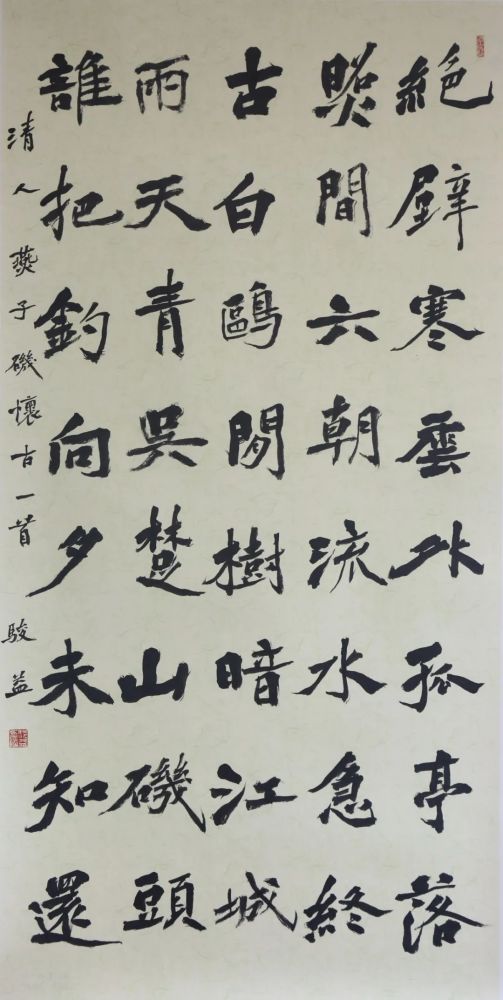 絶壁寒雲外孤亭落
照間六朝流水急終
古白鷗閒樹暗江城
雨天青吳楚山磯頭
誰把釣向夕未知還
清人燕子磯懷古一首 駿益